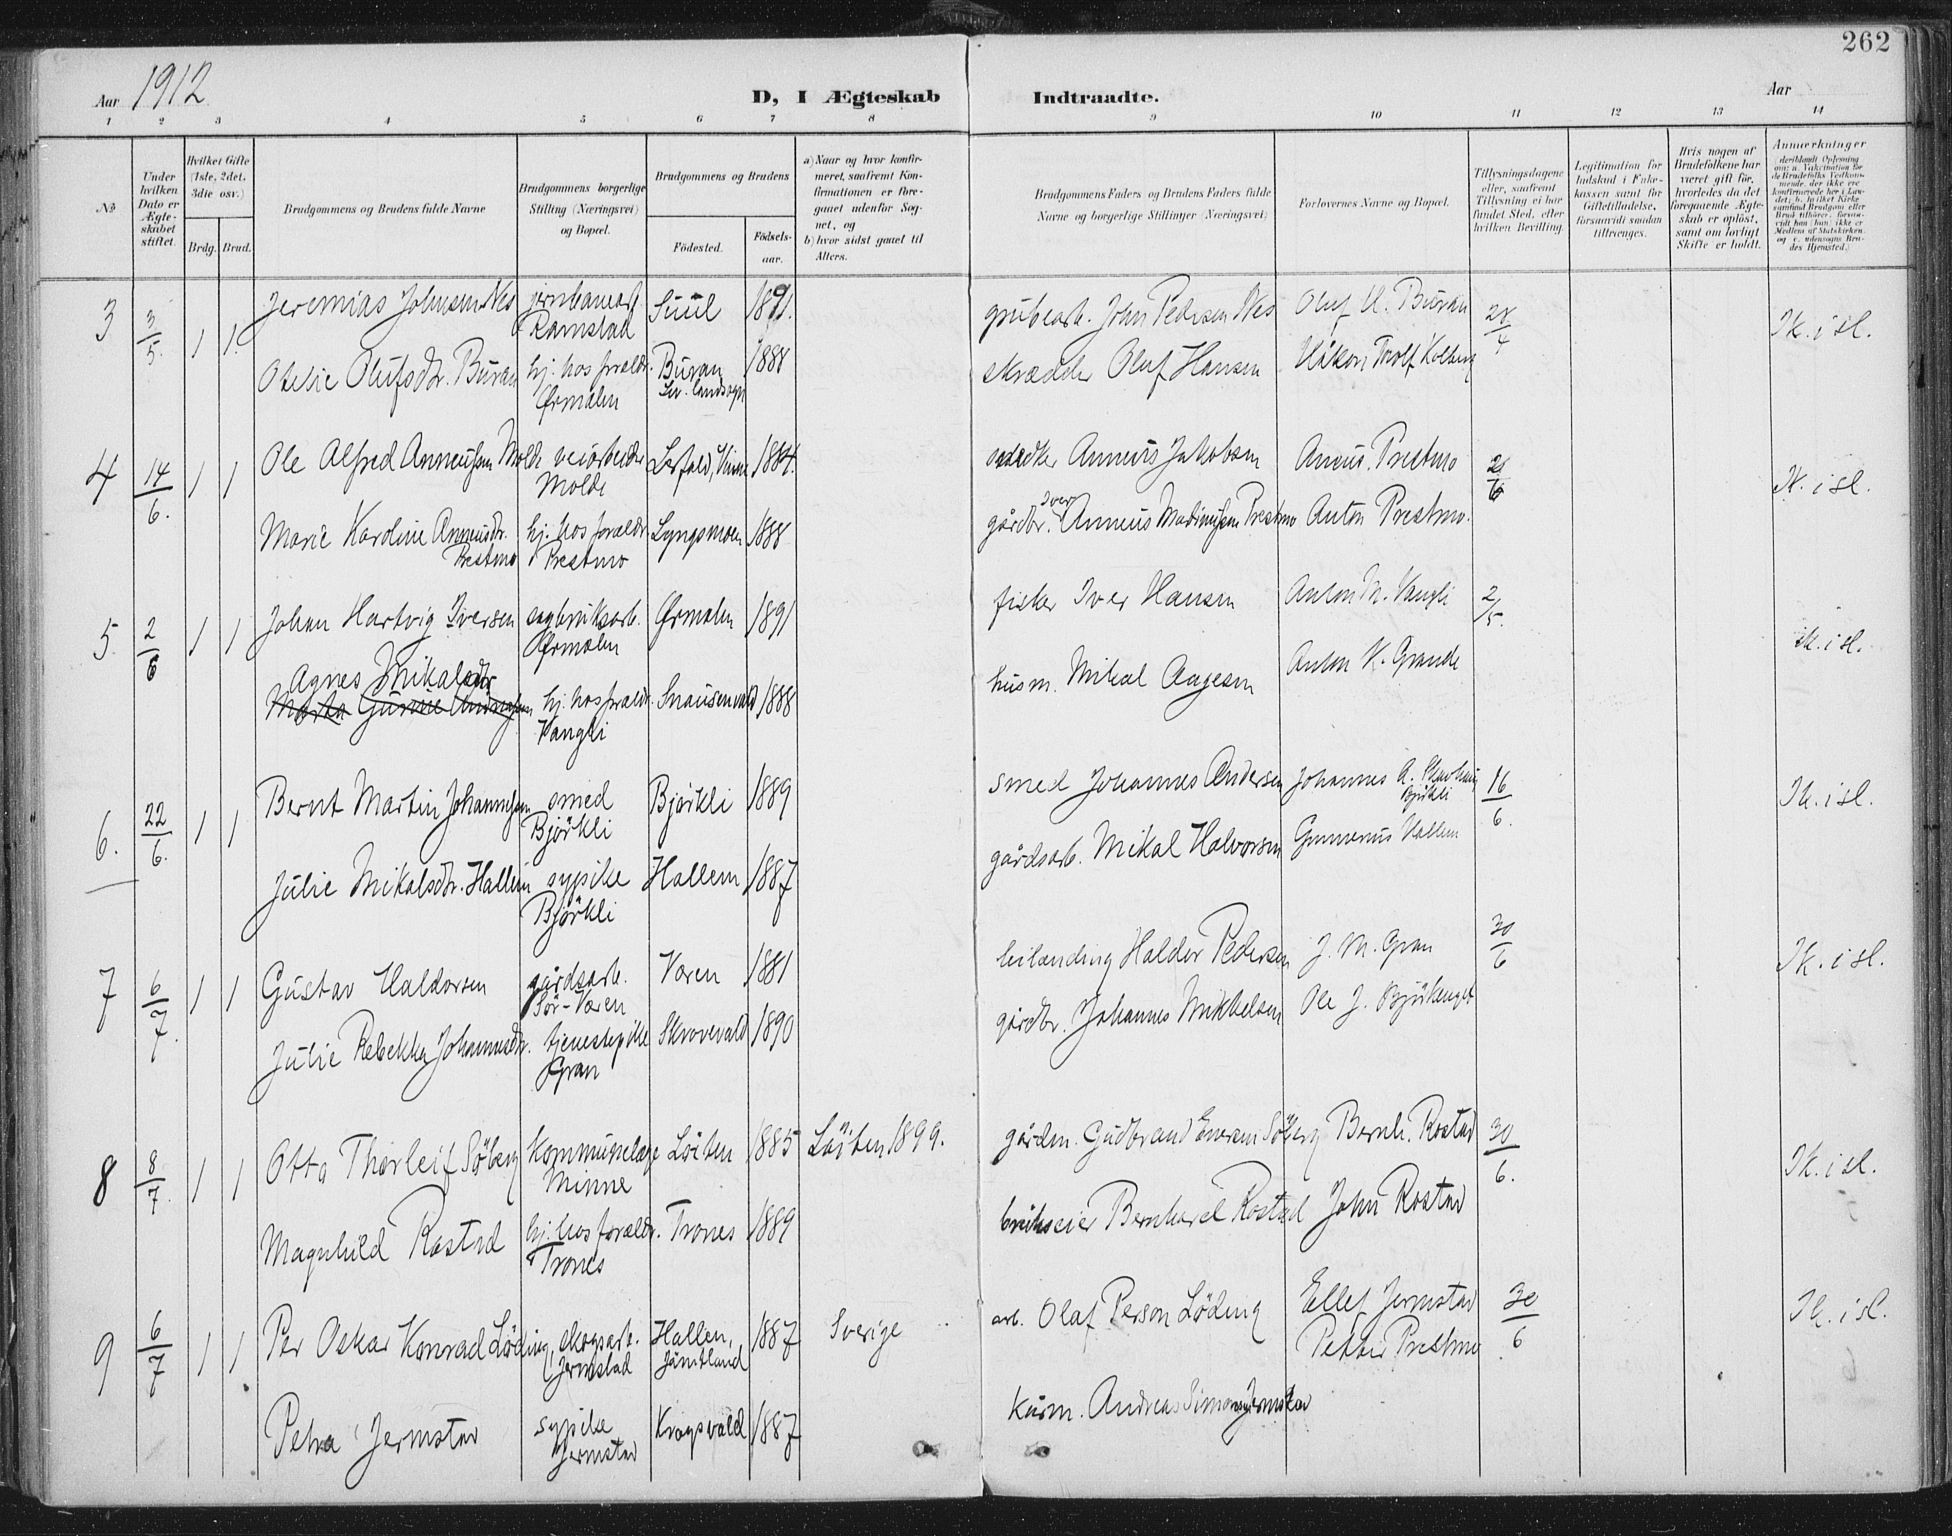 262
Aar 1912
D, I Ægteskab Indtraadte.
Aar
1 2 3 4 5 6 7 8 9 10 11 12 13 14
№
Under hvilken Dato er Ægteskabet stiftet.
Hvilket Gifte (1ste, 2det, 3die osv.)
Brdg. Brud.
Brudgommens og Brudens fulde Navne
Brudgommens borgerlige Stilling (Næringsvei) og Bopæl.
Brudgommens og Brudens
Födested.
Födselsaar.
a) Naar og hvor konfirmeret, saafremt Konfirmationen er foregaaet udenfor Sognet, og
b) hvor sidst gaaet til Alters.
Brudgommens Faders og Brudens Faders fulde Navne og borgerlige Stillinger (Næringsvei)
Forlovernes Navne og Bopæl.
Tillysningsdagene eller, saafremt Tillysning ei har fundet Sted, efter hvilken Bevilling.
Legitimation for Indskud i Enkekassen samt for Giftetilladelse, forsaavidt saadan tiltrænges.
Hvis nogen af Brudefolkene har været gift før, hvorledes da det foregaaende Ægteskab er oplöst, samt om lovligt Skifte er holdt.
Anmærkninger
3 3/5. 1 1. Jeremias Johnsen Nes jernbanearb. Ramstad Suul 1891. grubearb. John Pedersen Nes Oluf H. Buran 28/4 Ik. i sl.
Otelie Olufsdtr. Buran hj. hos foreldr. Ørmelen Buran Lev. landsogn 1888 skrædder Oluf Hansen Håkon Trolf Kolberg
4 14/6. 1 1 Ole Alfred Anneussen Molde veiarbeider Molde Lesfald, Vinne 1884. Anneus Jakobsen Aneus Prestmo Ik. i sl.
Marie Karoline Anneusdtr. Prestmo hj. hos foreldr. Prestmo Lyngsmoen 1888 gårdbr. Iver Anneus Prestmo Anton Prestmo.
5. 2/6 1 1 Johan Hartvig Iversen sagbruksarb. Ørmelen Ørmelen 1891 fisker Iver Hansen Anton M. Vangli 2/5. Ik. i sl.
Agnes Mikalsdtr
hj. hos foreldr. Vangli Snausenvald 1888 husm. Mikal Aagesen Anton K. Grande
6. 22/6. 1 1 Bernt Martin Johannessen smed Björkli Bjørkli 1889 smed Johannes Andersen Johannes A. Björkli 16/6. Ik. i sl.
Julie Mikalsdtr. Hallem sypike Björkli Hallem 1887 gårdsarb. Mikal Halvorsen Gunnerius Hallem
7 6/7. 1 1 Gustav Haldorsen gårdsarb. Sör-Væren Væren 1881 leilending Haldor Pedersen J. M. Gran 30/6 Ik. i sl.
Julie Rebekka Johannesdtr. tjenestepike Gran Skrovevald 1890 gårdbr. Johannes Mikkelsen Ole J. Björkenget
8 8/7. 1 1 Otto Thorleif Söberg kommunelæge Minne Löiten 1885 Löiten 1899. gårdm. Gudbrand Enersen Söberg Bernh. Rostad 30/6. Ik. i sl.
Magnhild Rostad hj. hos foreldr. Trones Trones 1889 brukseier Bernhard Rostad John Rostad
9 6/7 1 1 Per Oskar Konrad Löding, skogsarb. Jermstad Hallen, Jämtland 1887 Sverige arb. Olaf Person Löding Ellef Jermstad 30/6 Ik. i sl.
Petter Prestmo
Petra Jermstad sypike Jermstad Kragsvald 1887 husm. Andreas Simonsen Jermstad